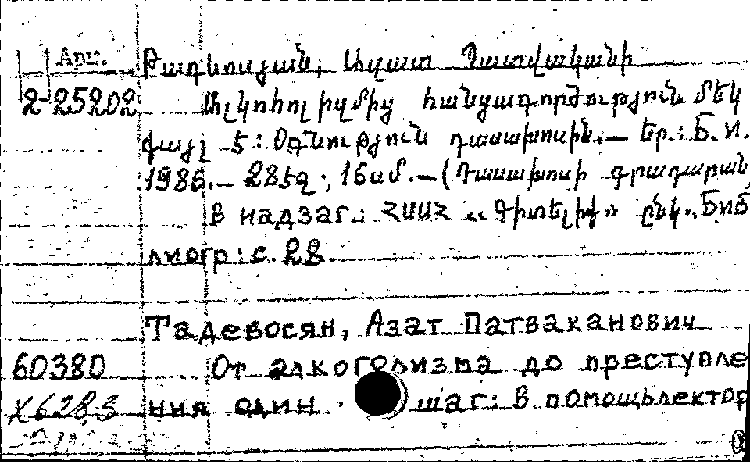 Арм. Թադևոսյան, Ազատ Պատվականի
2-25202 Ալկոհոլիզմից հանցագործություն մեկ
քայլ է: Օգնություն դասախոսին.— Եր.: Б. и.
1986.— 28էջ; 16սմ.— (Դասախոսի գրադարան
В надзаг.: ՀՍՍՀ «Գիտելիք» ընկ. Биб
лиогр: с. 28
Тадевосян, Азат Патваканович
60380 От алкоголизма до преступле
Х628.3 ния один шаг: В помощьлектор